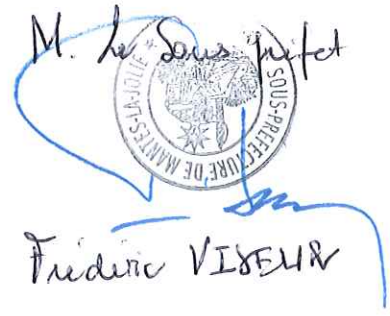 M. Le Sous préfet
SOUS-PREFECTURE DE MANTES-LA-JOLIE
Frédéric VISEUR